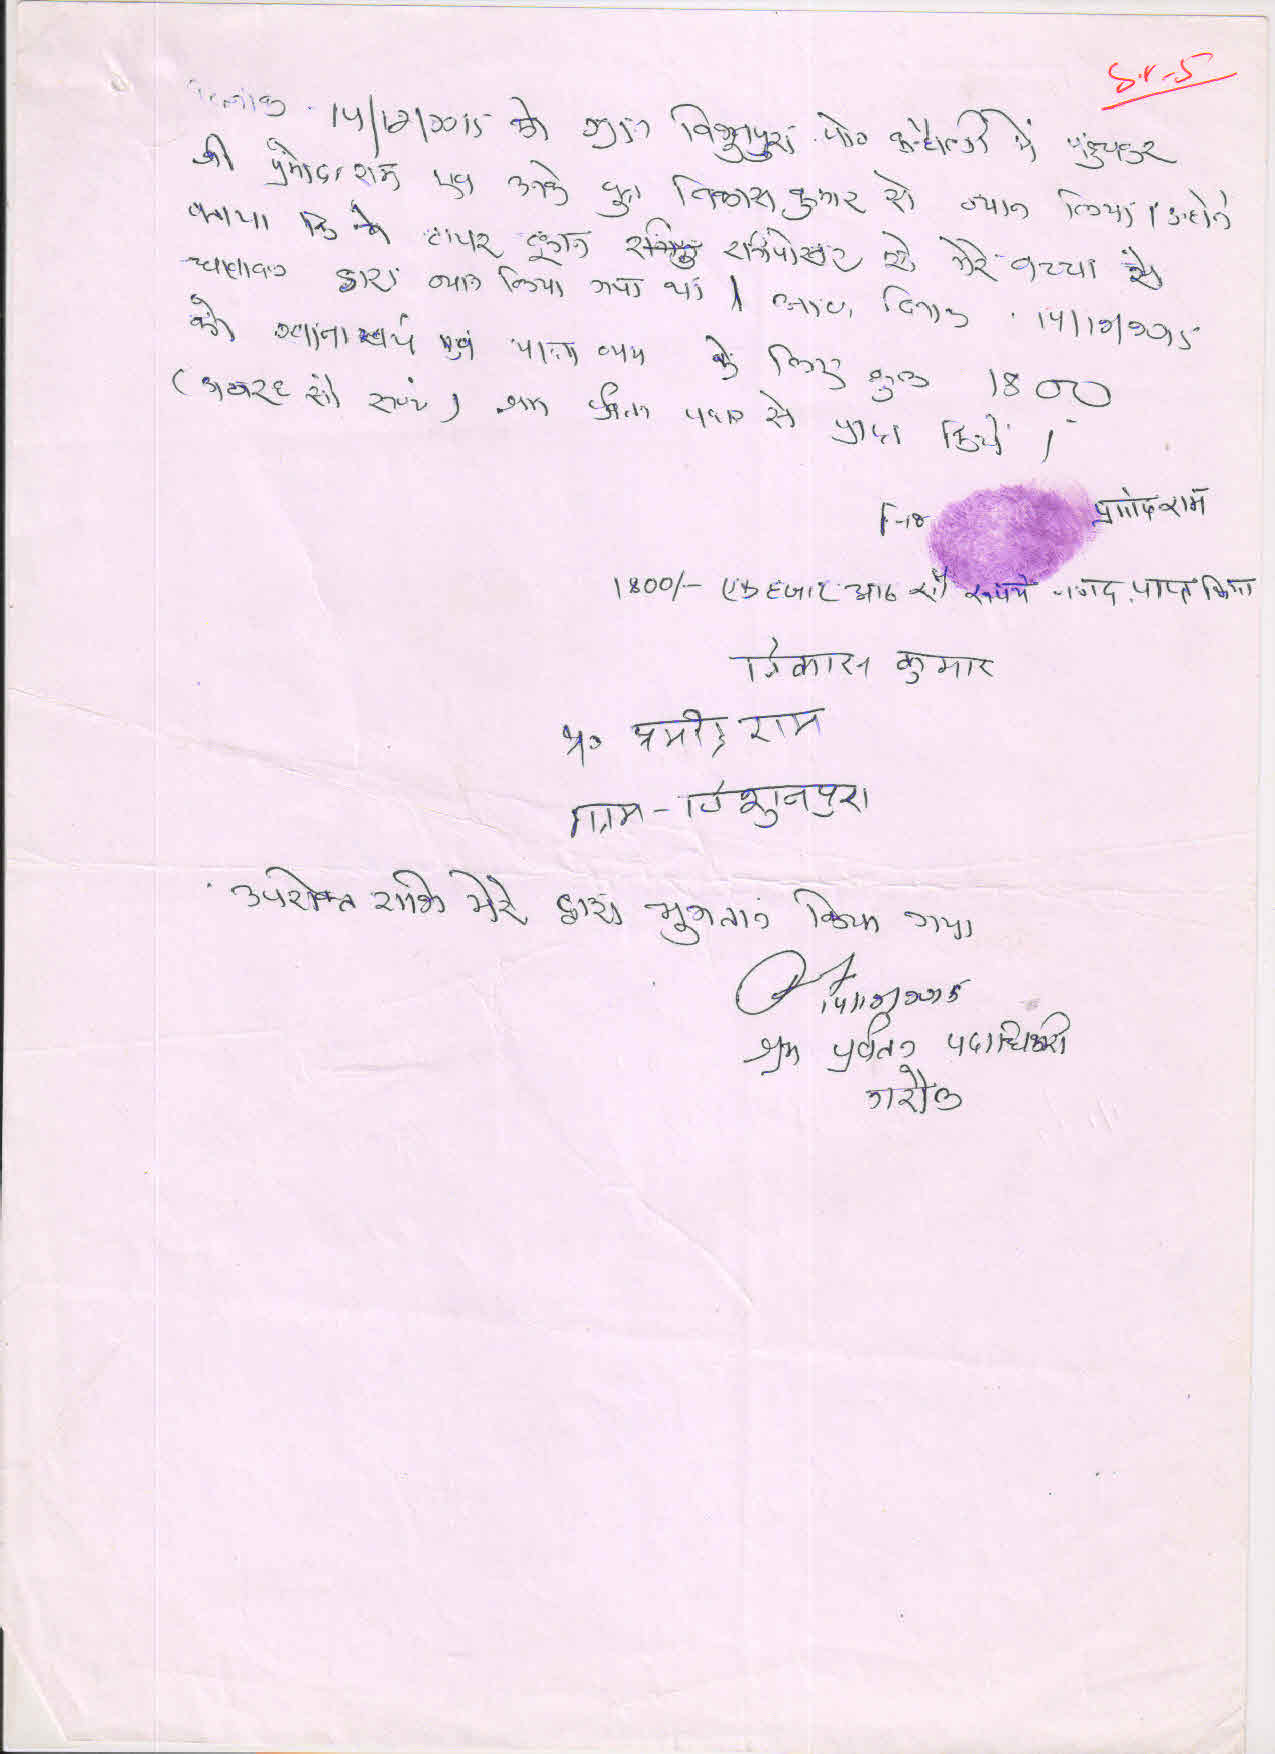 Sr-5
दिनांक 14/12/2015 को ग्राम विशुनपुरा पो० में पहुँचकर
श्री प्रमोद राम एवं उनके पुत्र विकास कुमार से ब्यान लिया। उन्होंने
बताया कि वे टायर दुकान से मेरे बच्चा से
द्वारा ब्यान लिया गया था। आज दिनांक 14/12/2015
को खाना खर्च एवं यात्रा व्यय के लिए कुल 1800
(अठारह सौ रुपये) श्रम प्रवर्तन से प्राप्त किये।
प्रमोद राम
1800/- एक हजार आठ सौ रूपये नगद प्राप्त किया
विकास कुमार
राम
ग्राम - विशुनपुरा
उपरोक्त राशि मेरे द्वारा भुगतान किया गया
14/12/2015
श्रम प्रवर्तन पदाधिकारी
गरौल